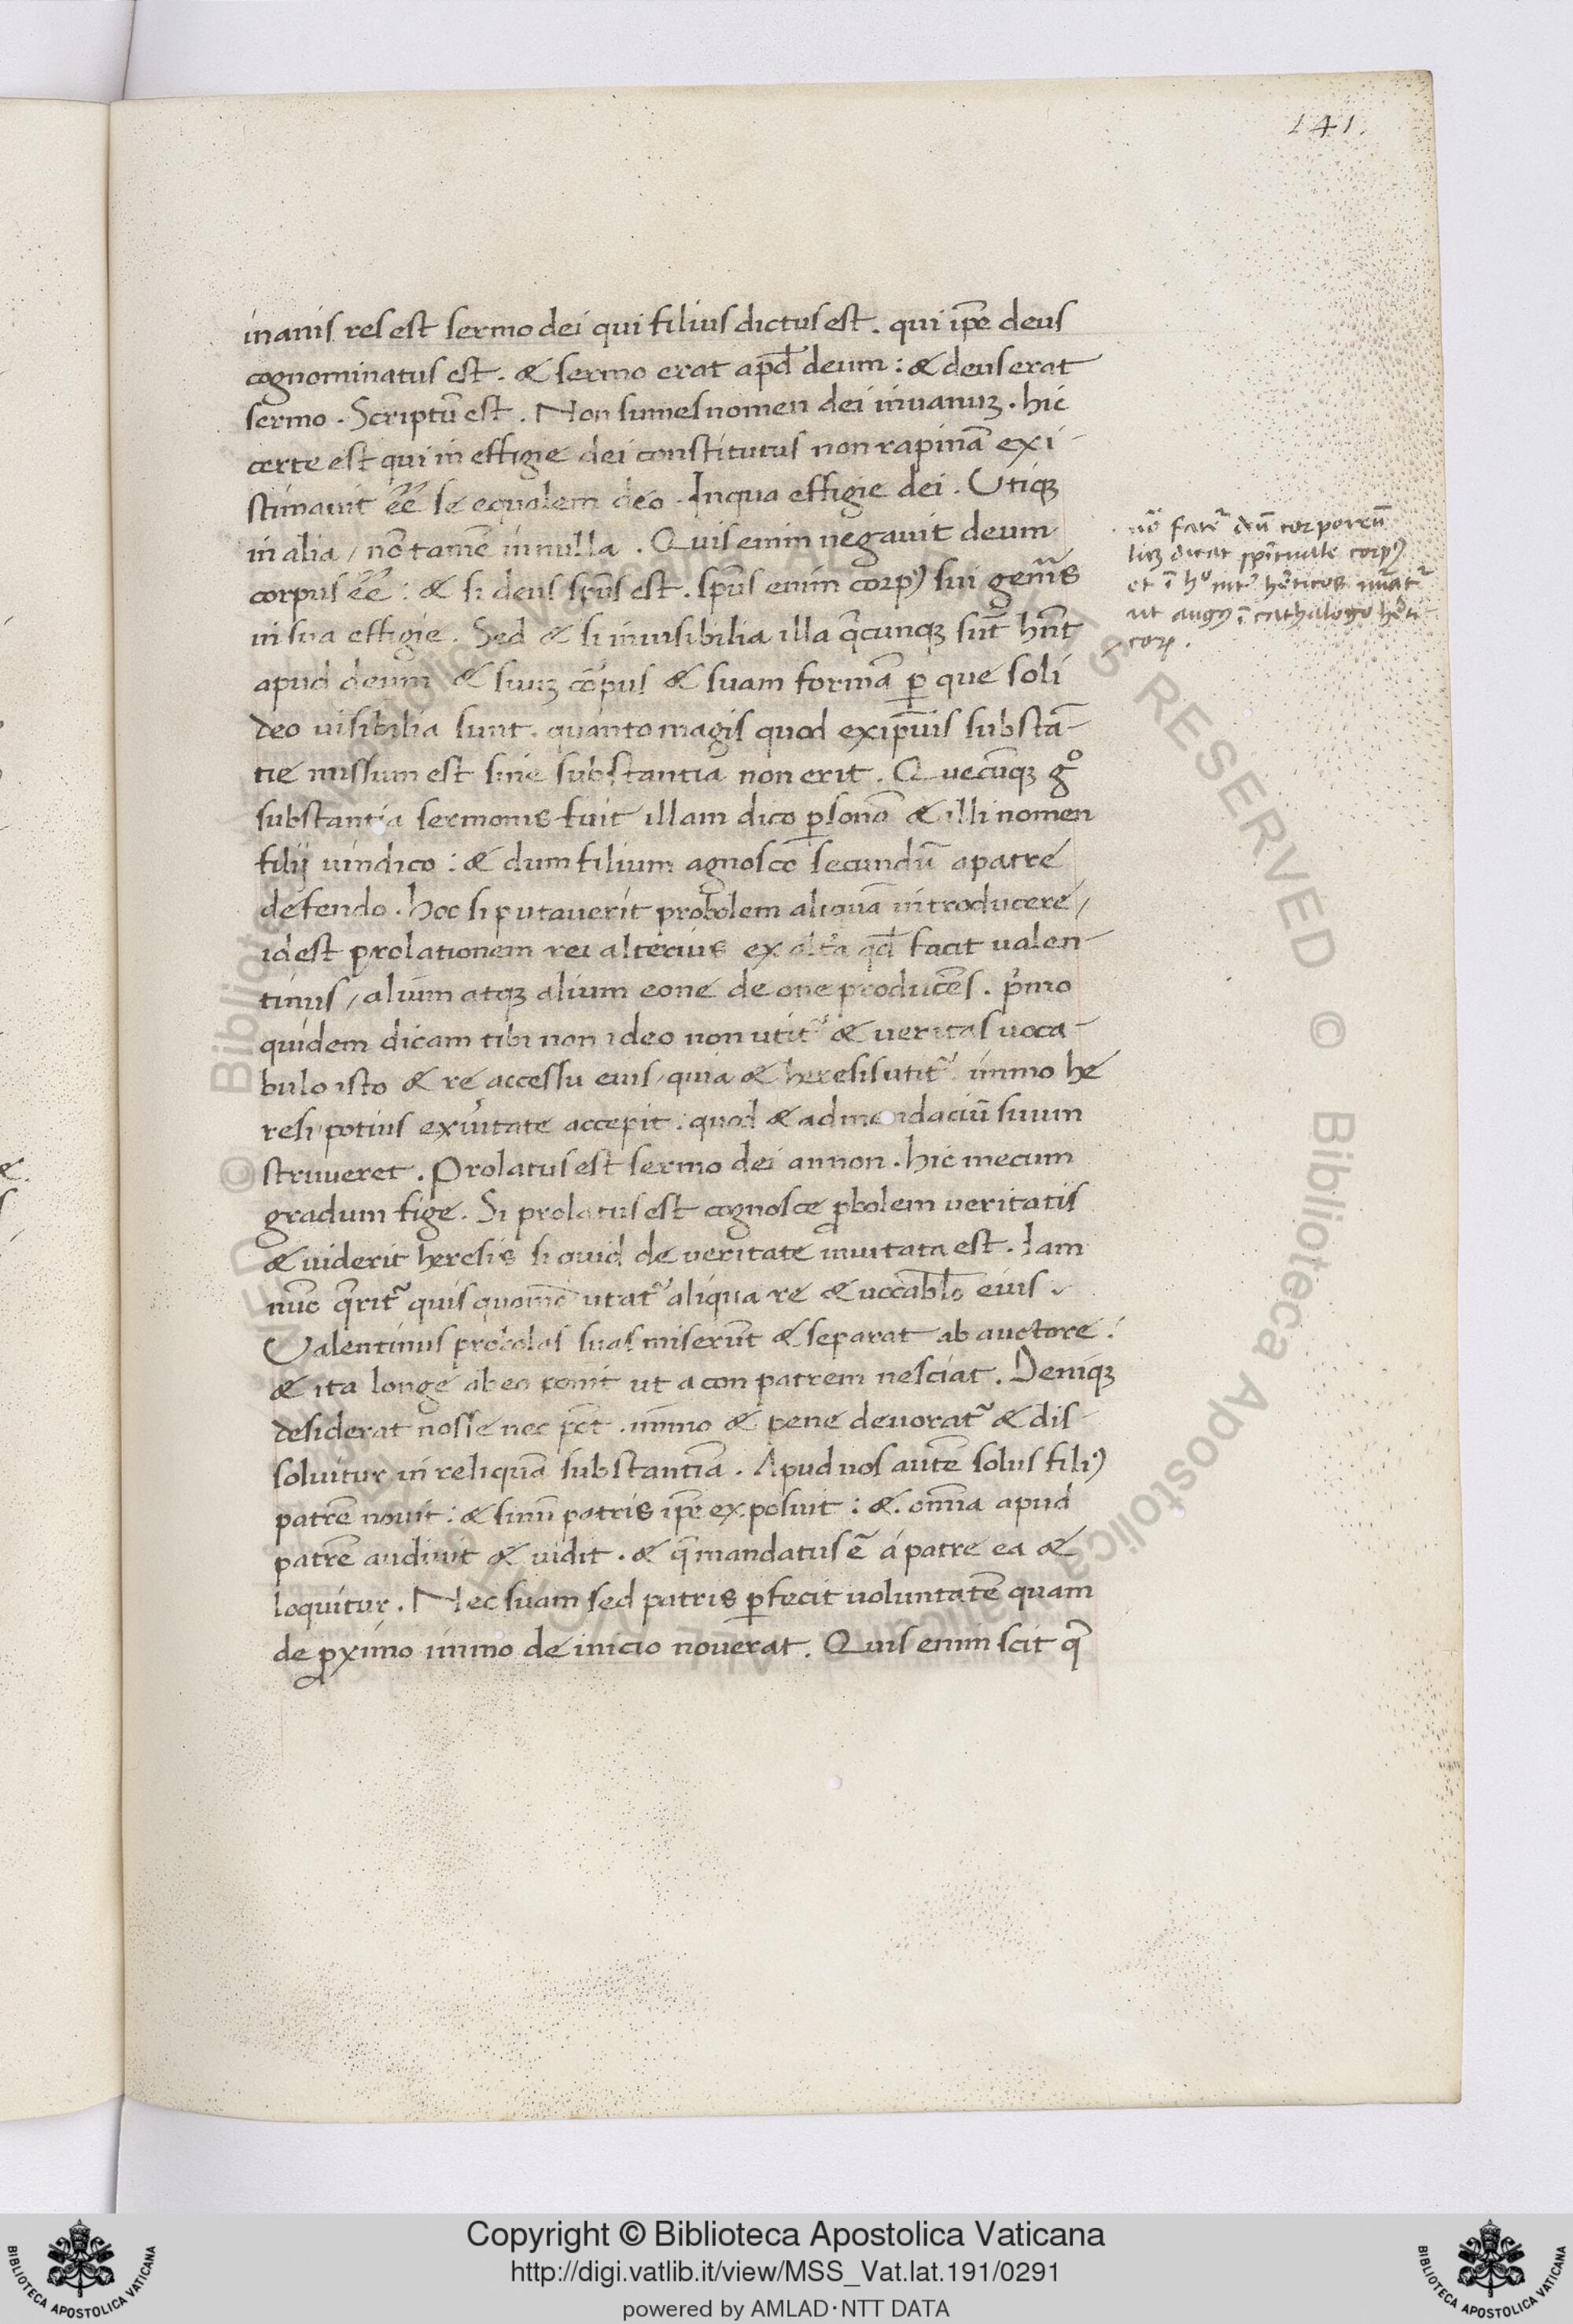 141.
inanis res est sermo dei qui filius dictus est. qui ip̅e deus
cognominatus est. & sermo erat apd̅ deum: & deus erat
sermo. Scriptu̅ est. Non sumes nomen dei in vanuꝫ. hic
certe est qui in effigie dei constitutus non rapina̅ exi-
stimavit e̅e̅ se equalem deo. In qua effigie dei. Utiqꝫ
in alia / no̅ tame̅ in nulla. Quis enim negavit deum
corpus e̅e̅: & si deus sp̅us est. sp̅us enim corpꝰ sui gen̅is
in sua effigie. Sed & si invisibilia illa q̅cunqꝫ su̅t hn̅t
apud deum & suuꝫ co̅pus & suam forma̅ ꝑ que soli
deo visibilia sunt. quanto magis quod ex ip̅ius substa̅-
tie missum est sine substantia non erit. Quecu̅qꝫ gͦ
substantia sermonis fuit illam dico ꝑsona̅ & illi nomen
filij vindico: & dum filium agnosco secundu̅ a patre
defendo. hoc si putaverit probolem aliqua̅ introducere /
id est prolationem rei alterius ex alt̅a qd̅ facit valen-
tinus / alium atqꝫ alium eone de one produce̅s. p̅mo
quidem dicam tibi non ideo non utit᷑ & veritas voca-
bulo isto & re accessu eius / quia & heresis utit᷑. immo he
resi potius ex v̅itate accepit: quod & ad mendaciu̅ suum
strueret. Prolatus est sermo dei an non. hic mecum
gradum fige. Si prolatus est cognosce ꝓbolem veritatis
& viderit heresis si quid de veritate imitata est. Iam
nu̅c q̅rit᷑ quis quomo̅ utat᷑ aliqua re & vocab̅lo eius.
Valentinus probolas suas miseru̅t & separat ab auctore:
& ita longe ab eo ponit ut a eon patrem nesciat. Deniqꝫ
desiderat nosse nec po̅t. immo & pene devorat᷑ & dis-
solvitur in reliqua̅ substantia̅. Apud nos aute̅ solus filiꝰ
patre̅ novit: & sinu̅ patris ip̅e exposuit: & om̅ia apud
patre̅ audivit & vidit. & q̅ mandatus e̅ á patre ea &
loquitur. Nec suam sed patris ꝑfecit voluntate̅ quam
de ꝓximo immo de inicio noverat. Quis enim scit q̅
no̅ fatet᷑ deu̅ corporeu̅
licꝫ dicat sp̅irituale corpꝰ
et i̅ hͦ int᷑ he̅ticos nu̅at᷑
ut augꝰ i̅ cathalogo he̅ti
coꝝ.
Copyright © Biblioteca Apostolica Vaticana
http://digi.vatlib.it/view/MSS_Vat.lat.191/0291
powered by AMLAD·NTT DATA